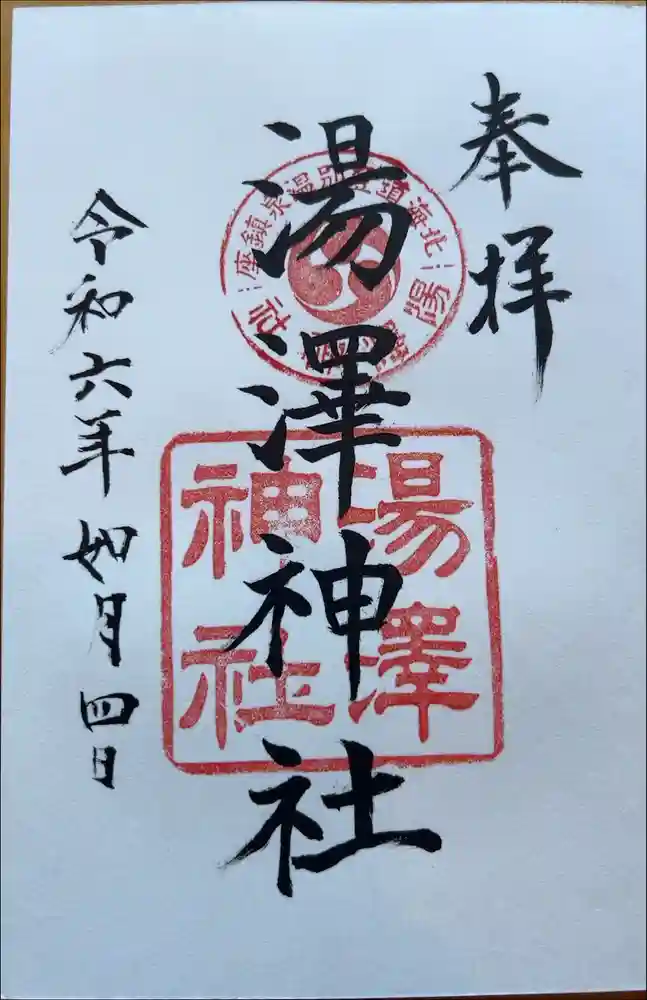 奉拝
湯澤神社
令和六年如月四日
北海道登別温泉鎮座
湯澤神社
湯澤
神社